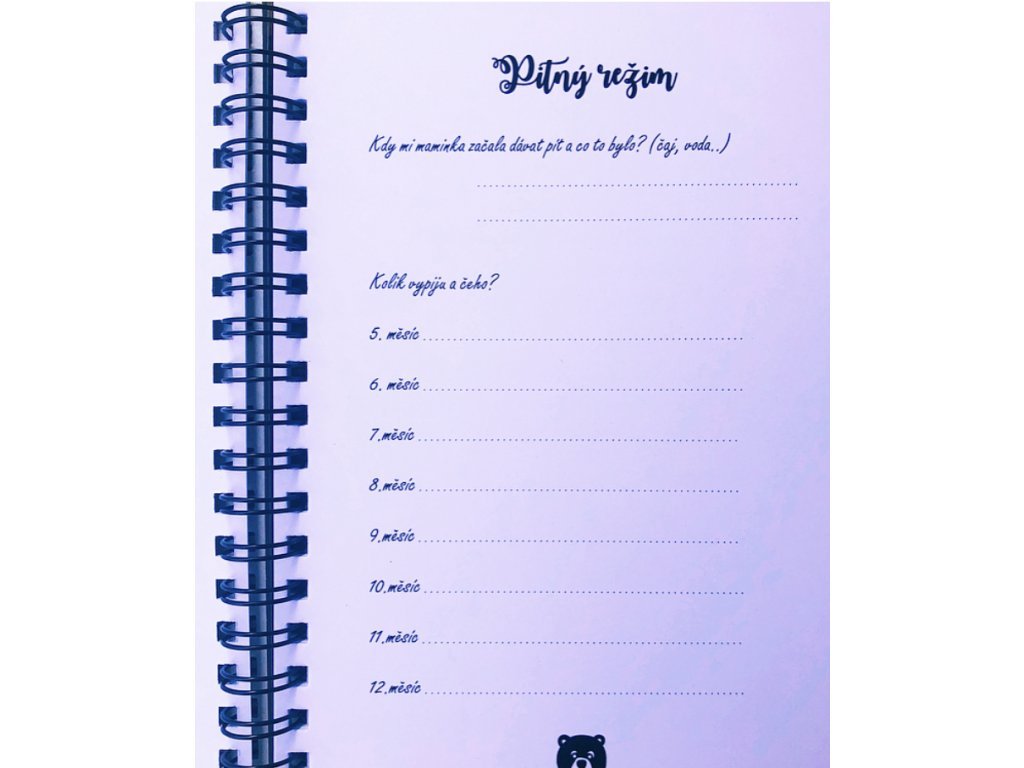 Pitný režim
Kdy mi maminka začala dávat pít a co to bylo? (čaj, voda..)
Kolik vypiju a čeho?
5. měsíc
6. měsíc
7.měsíc
8.měsíc
9.měsíc
10.měsíc
11.měsíc
12.měsíc